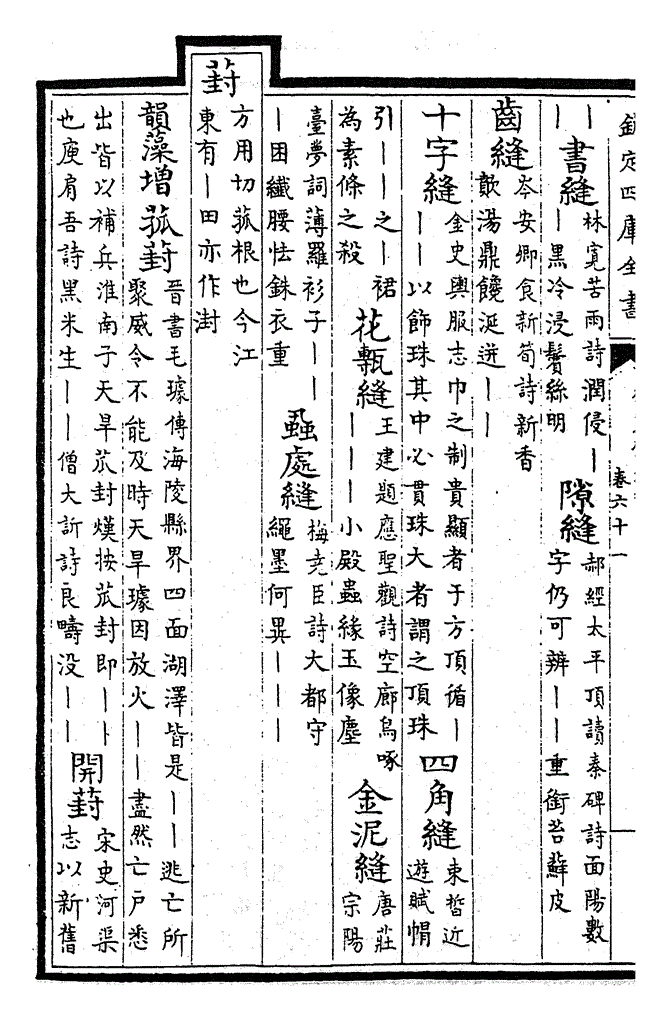 欽定四庫全書
卷六十一
｜
｜
書縫
林寛苦雨詩潤侵｜
｜黒冷浸鬢絲明
隙縫
郝經太平頂讀秦碑詩面陽數
字仍可辨｜｜重銜苔蘚皮
齒縫
岑安卿食新筍詩新香
歕湯鼎饞涎迸｜｜
十字縫
金史輿服志巾之制貴顯者于方頂循｜
｜｜以飾珠其中必貫珠大者謂之頂珠
四角縫
束晳近
遊賦㡌
引｜｜之｜裙
為素條之殺
花甎縫
王建題應聖觀詩空廊鳥啄
｜｜｜小殿蟲緣玉像塵
金泥縫
唐莊
宗陽
臺夢詞薄羅衫子｜｜
｜困纖腰怯銖衣重
蝨處縫
梅堯臣詩大都守
繩墨何異｜｜｜
葑
方用切菰根也今江
東有｜田亦作湗
韻藻增
菰葑
晉書毛璩傳海陵縣界四面湖澤皆是｜｜逃亡所
聚威令不能及時天旱璩因放火｜｜盡然亡戸悉
出皆以補兵淮南子天旱苽封熯按苽封即｜｜
也庾肩吾詩黒米生｜｜僧大訢詩良疇没｜｜
開葑
宋史河渠
志以新舊